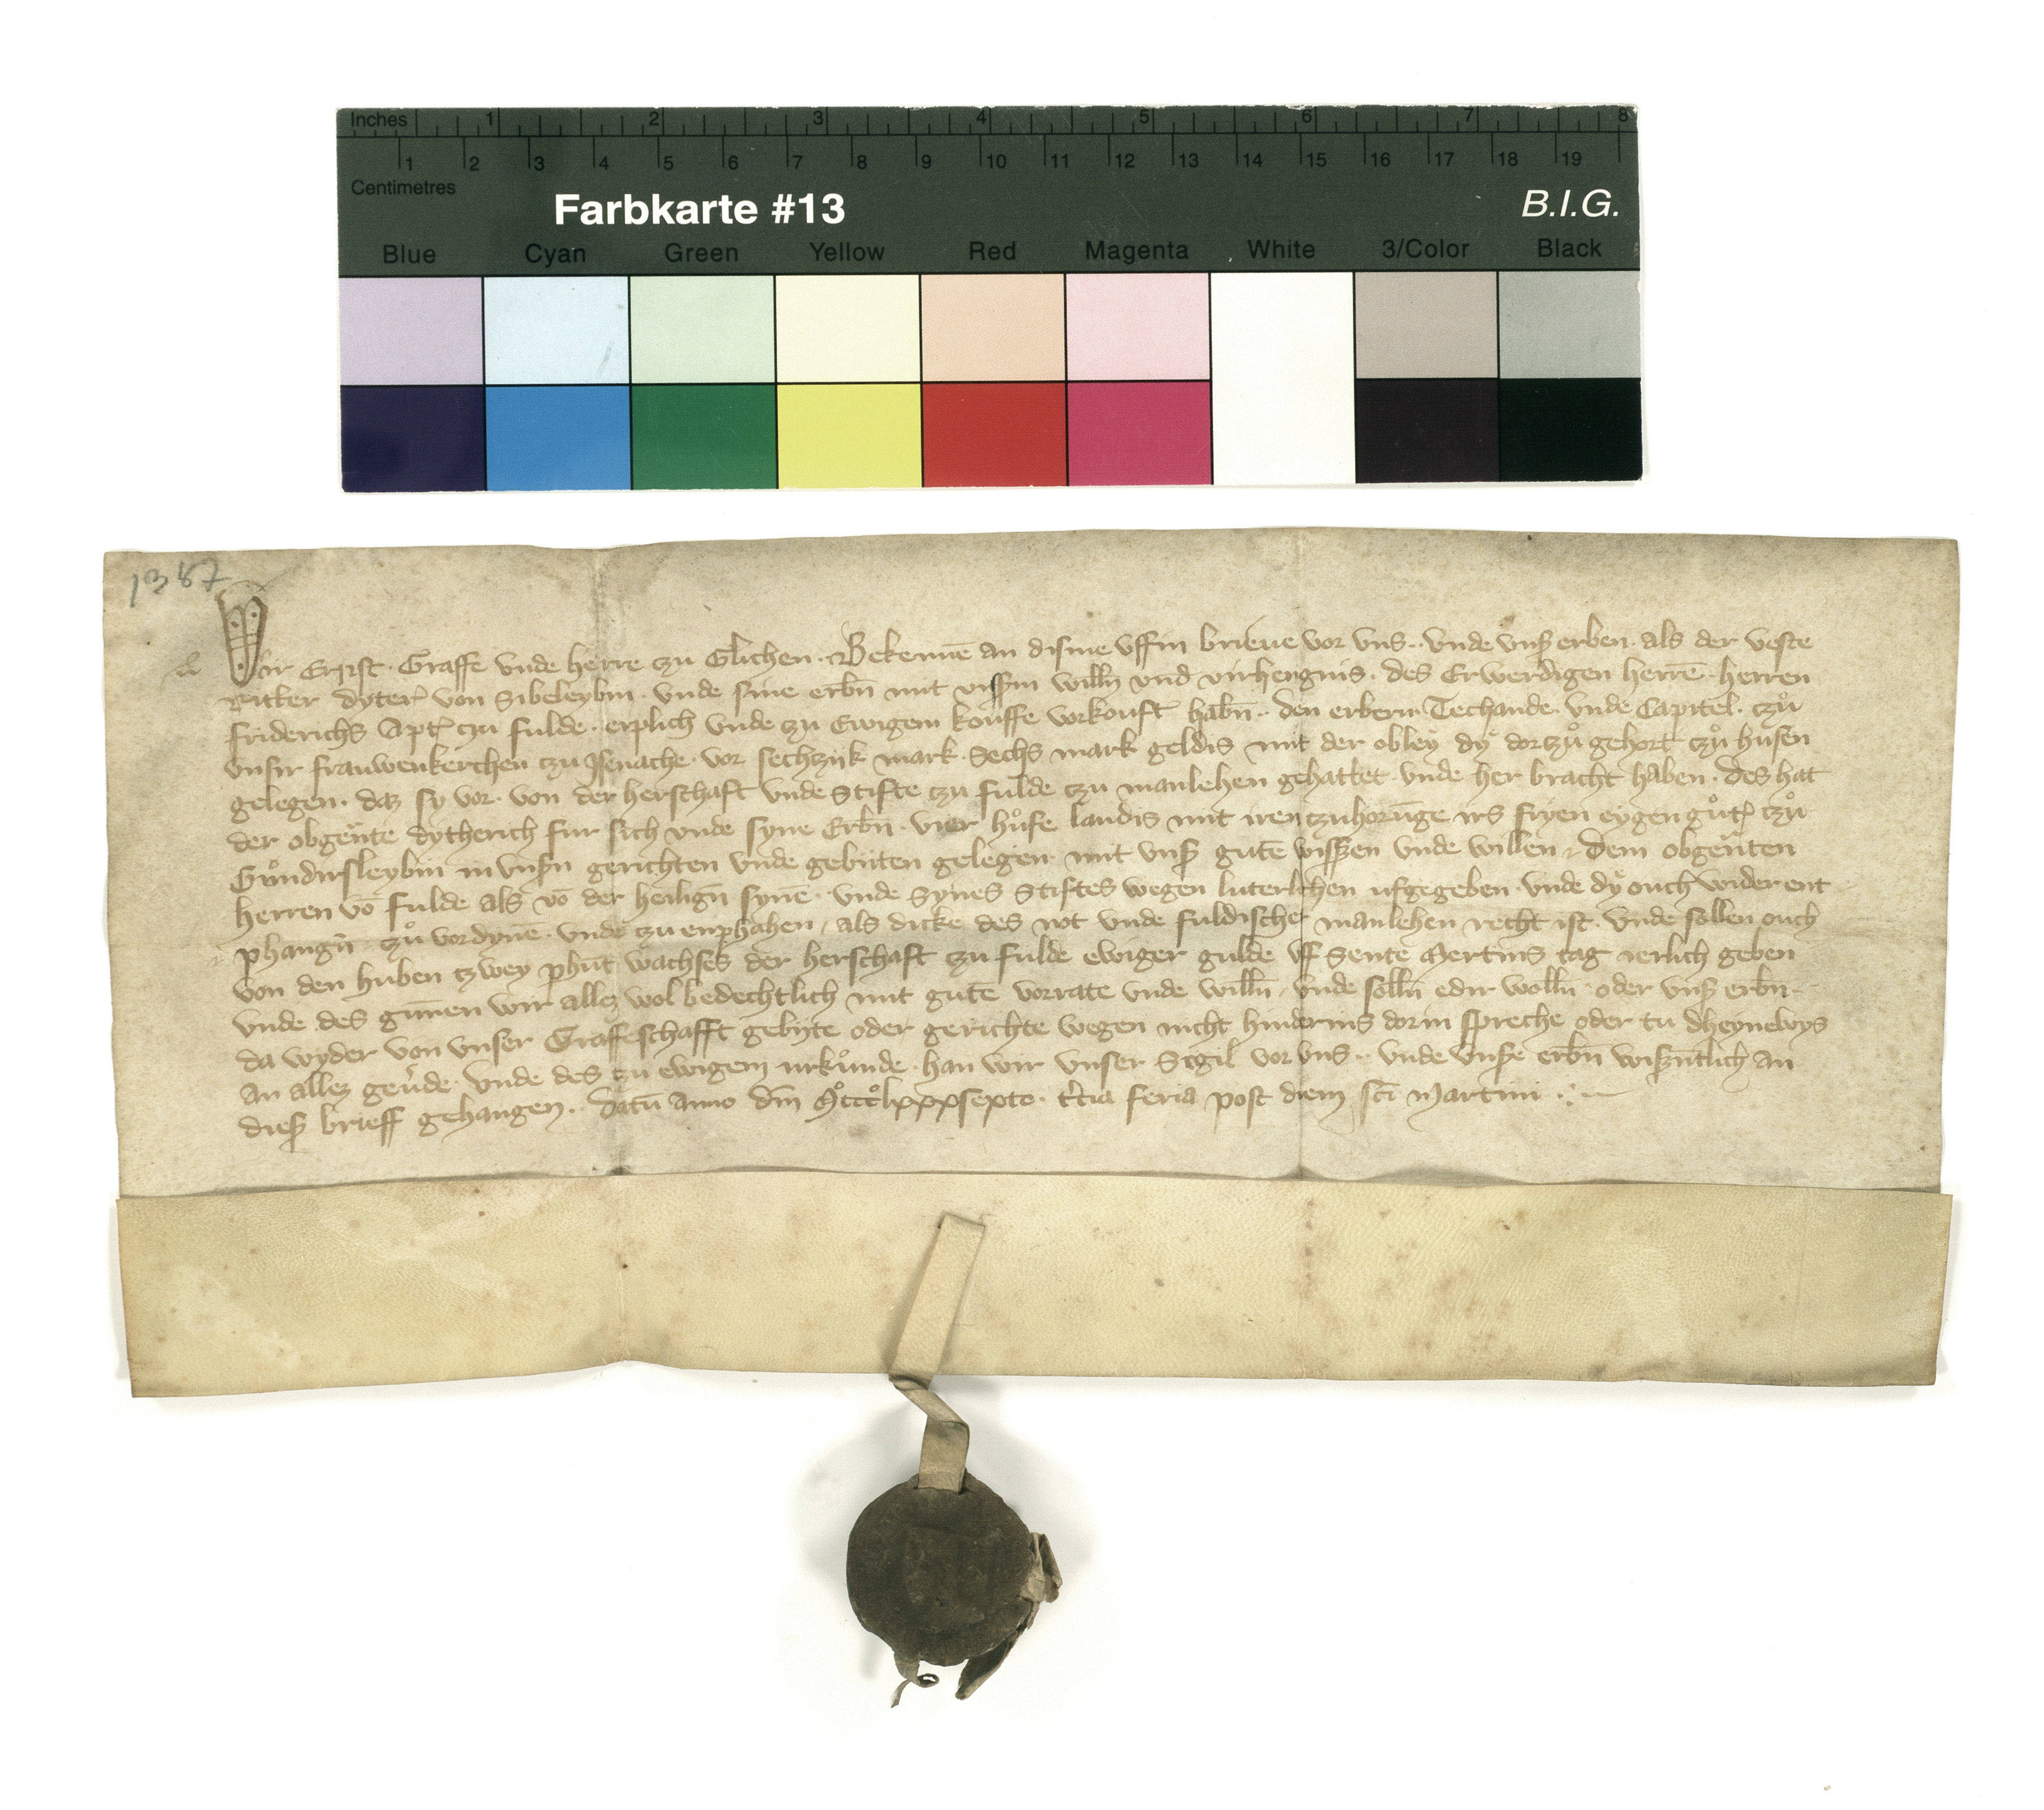 Inches 1 2 3 4 5 6 7 8
1 2 3 4 5 6 7 8 9 10 11 12 13 14 15 16 17 18 19
Centimetres
Farbkarte #13
B.I.G.
Blue Cyan Green Yellow Red Magenta White 3/Color Black
1387
Wir Ernst · Graffe vnde herre zu Glichen · Bekennē an disme vffin brieue vor vns ·· vnde vnß erben · als der veste
Ritter dyter von Sibeleybin · vnde sine erbn̄ mit willn vnd virhengnis · des Erwerdigen herrē · herren
friderichs Apt czu fulde · erplich vnde zu Ewigem kouffe vorkouft habn̄ ·· den erbern Techande · vnde Capitel · czů
vnsir frauwenkerchen czu Jsenache · vor sechczik mark · Sechs mark geldis mit der obley dy dorczů gehort czů husen
gelegen · daz sy vor · von der herschaft vnde Stifte czu fulde czu manlehen gehattet · vnde her bracht haben · des hat
der obgen̄te dytherich fur sich vnde syne Erbn̄ · vier hůfe landis mit iren czuhorūge irs fryen eygen gůt czů
Gůndirsleybin in vnßn gerichten vnde gebiiten gelegen mit vnß gutē wißen vnde willen · dem obgen̄ten
herren vō fulde als vō der heilign̄ synē · vnde synes Stiftes wegen luterlichen ufgegeben · vnde dy ouch wider ent
phangn̄ · czů vordynē · vnde czu enphahen / als dicke des not vnde fuldischer manlehen recht ist · vnde sollen ouch
von den huben czwey phūt wachses der herschaft czu fulde ewiger gulde vff Sente Mertins tag ierlich geben
vnde des gūnen wir allez wol bedechtlich mit gutē vorrate vnde willn̄ / vnde solln̄ edir wolln̄ oder vnß erbn̄ ·
da wyder von vnser Graffeschafft gebyte oder gerichte wegen nicht hindernis dorin spreche oder tu dheynewys
an allez geūde · vnde des czu ewigem urkůnde · han wir vnser Sigil vor vns ·· vnde vnße erbn̄ wißn̄tlich an
dieß brieff gehangen ·· datū anno dm̄ Mͦcccͦlxxxsexto · t̄cia feria post diem sc̄i Martini